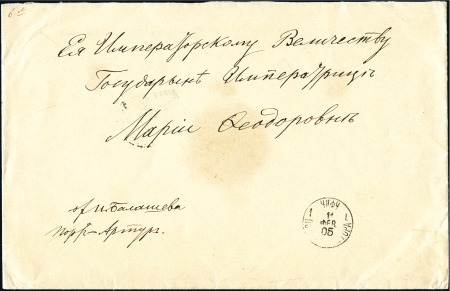 Ея Императорскому Величеству
Государынѣ Императрицѣ
Маріи Ѳеодоровнѣ
от И. Балашева
Порт-Артур.
ЧИФУ
11
ФЕВ
05